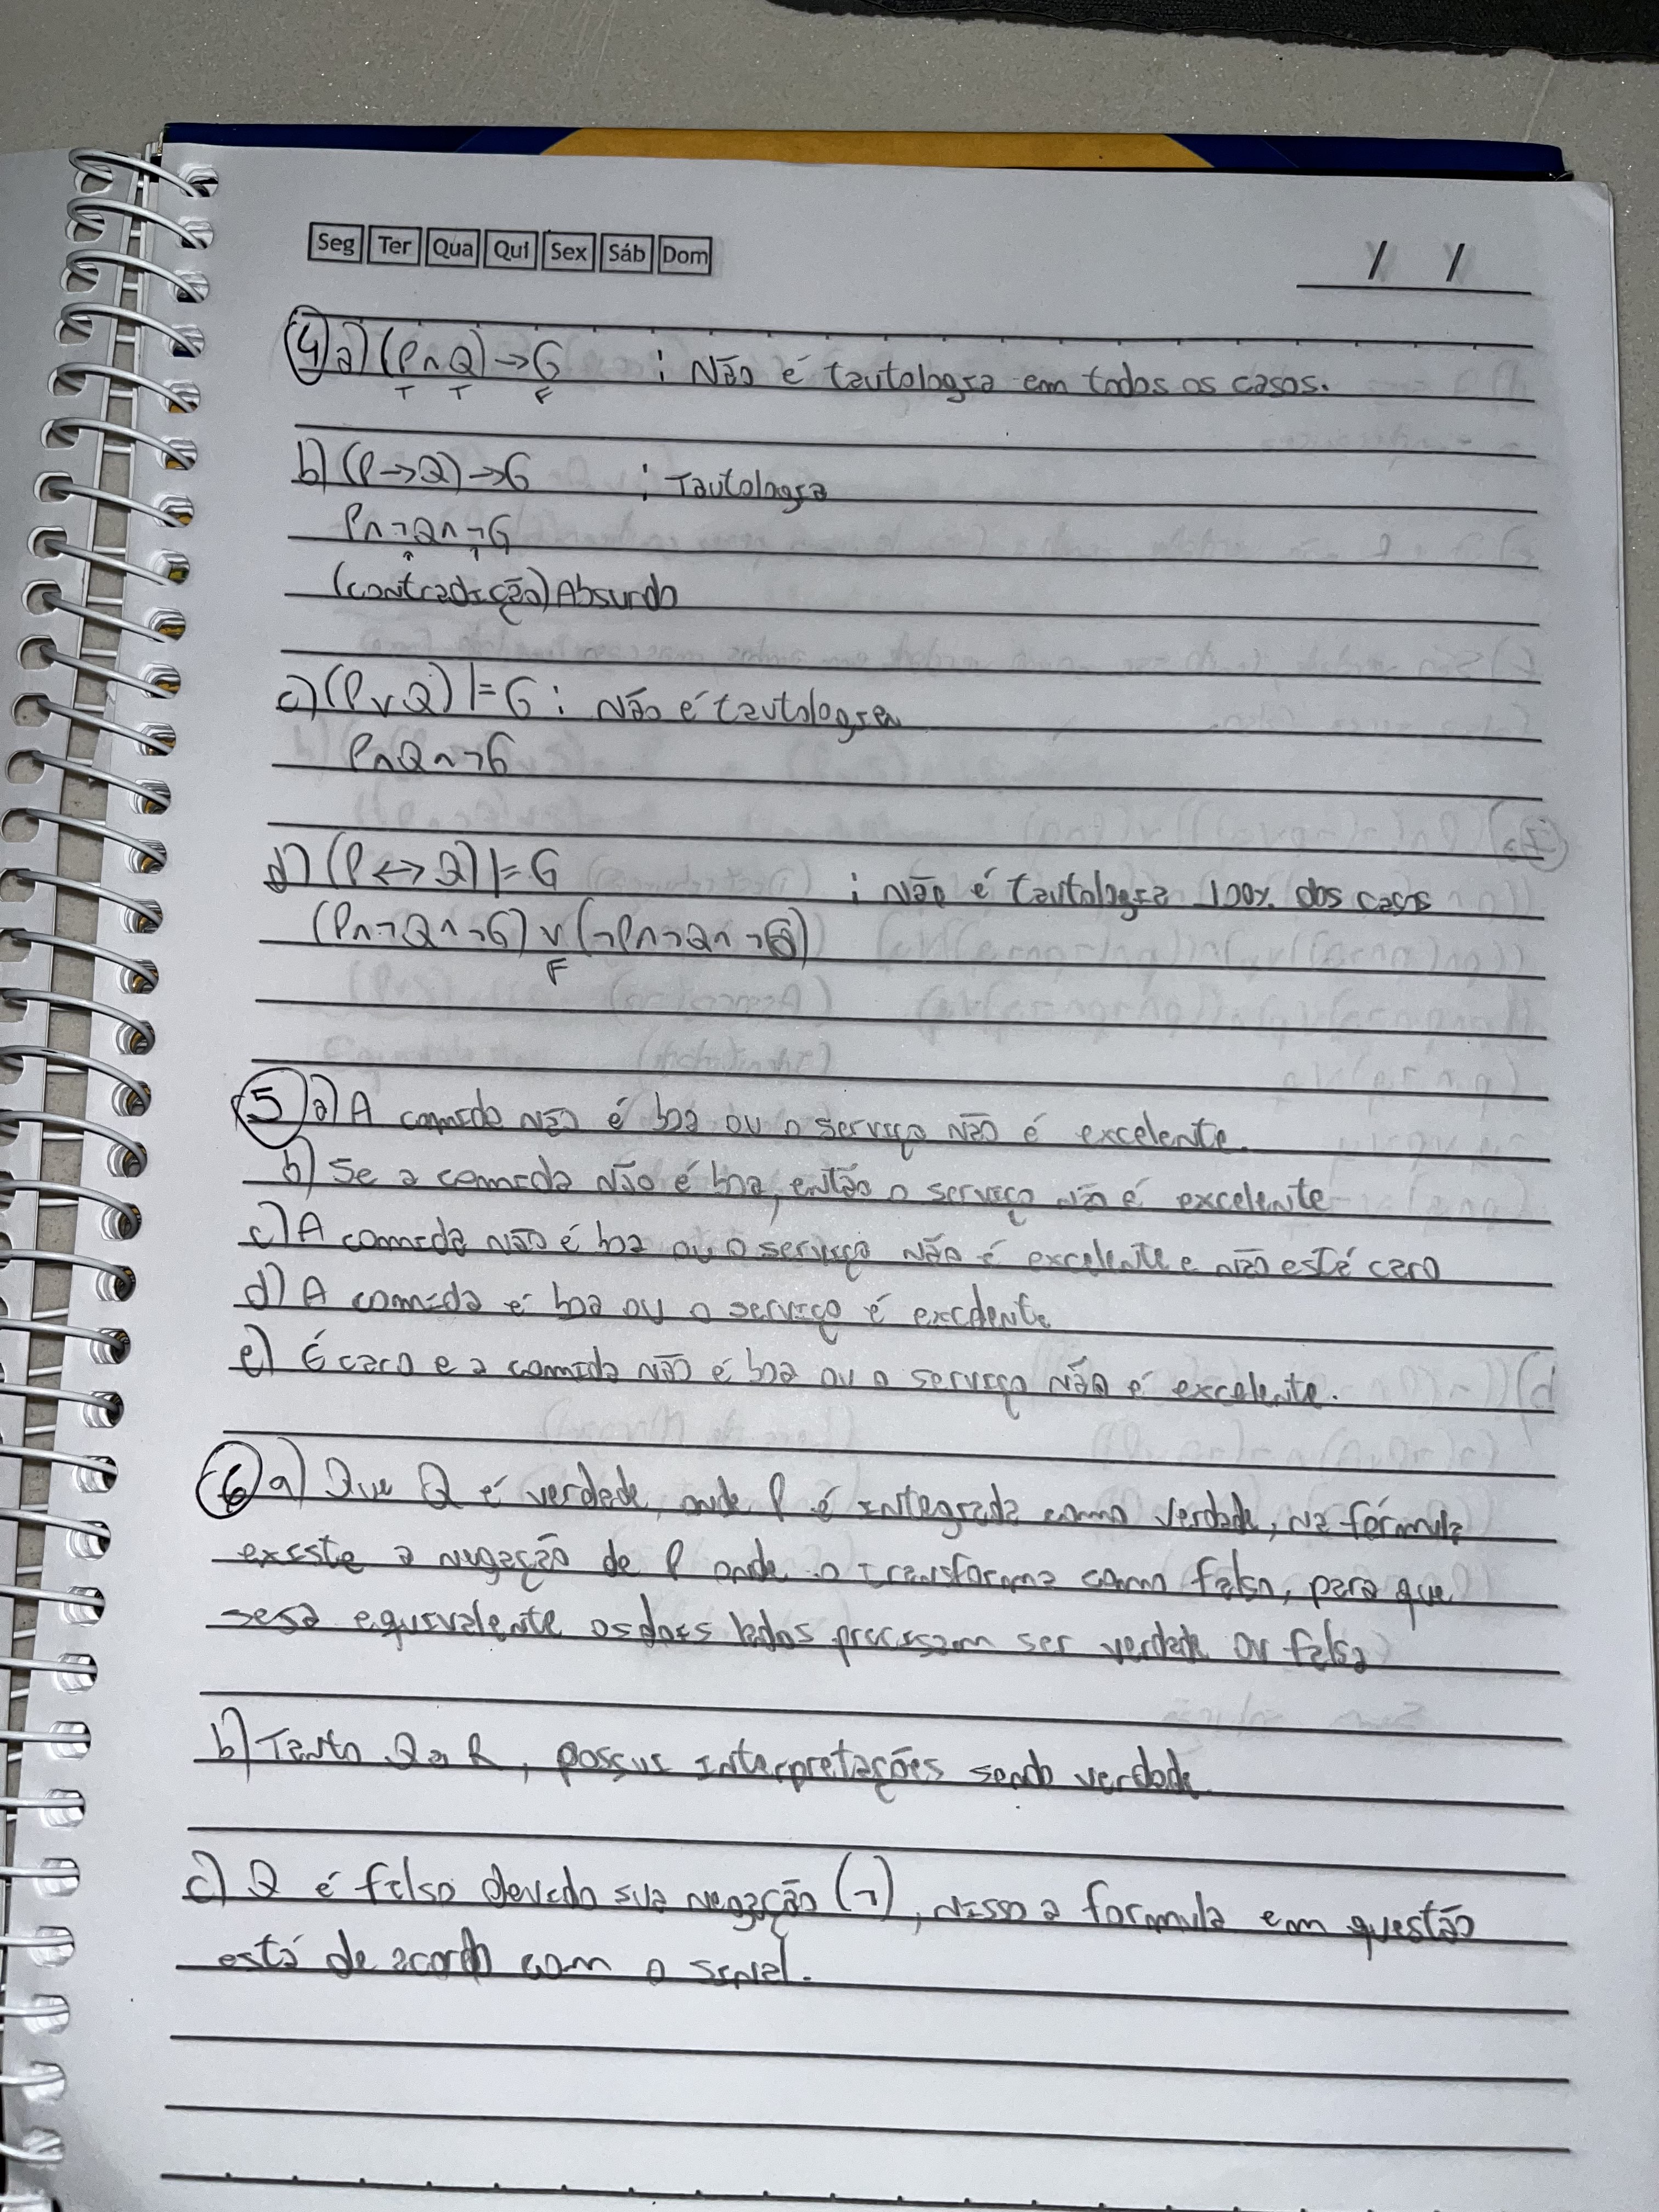 Seg Ter Qua Qui Sex Sáb Dom
/ /
4) a) (P ∧ Q) → G : Não é tautologia em todos os casos.
T T F
b) (P → Q) → G : Tautologia
P ∧ ¬Q ∧ ¬G
(contradição) Absurdo
c) (P ∨ Q) |= G : Não é tautologia
P ∧ Q ∧ ¬G
d) (P ↔ Q) |= G : Não é tautologia 100% dos casos
(P ∧ ¬Q ∧ ¬G) ∨ (¬P ∧ ¬Q ∧ ¬G)
F
5) a) A comida não é boa ou o serviço não é excelente.
b) Se a comida não é boa, então o serviço não é excelente
c) A comida não é boa ou o serviço não é excelente e não está caro
d) A comida é boa ou o serviço é excelente
e) É caro e a comida não é boa ou o serviço não é excelente.
6) a) Que Q é verdade, onde P é integrada como verdade, na fórmula
existe a negação de P onde o transforma como falso, para que
seja equivalente os dois lados precisam ser verdade ou falso
b) Tanto Q R, possui interpretações sendo verdade
c) Q é falso devido sua negação (¬), nisso a formula em questão
está de acordo com o sinal.